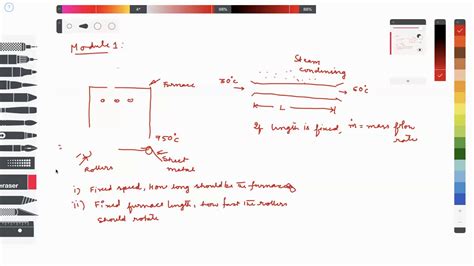 Module 1:
Furnace
950°C
Rollers
Sheet
metal
Steam
condensing
30°C
60°C
L
If length is fixed, ṁ = mass flow
rate
i) Fixed speed, How long should be the furnace
ii) Fixed furnace length, how fast the rollers
should rotate
eraser